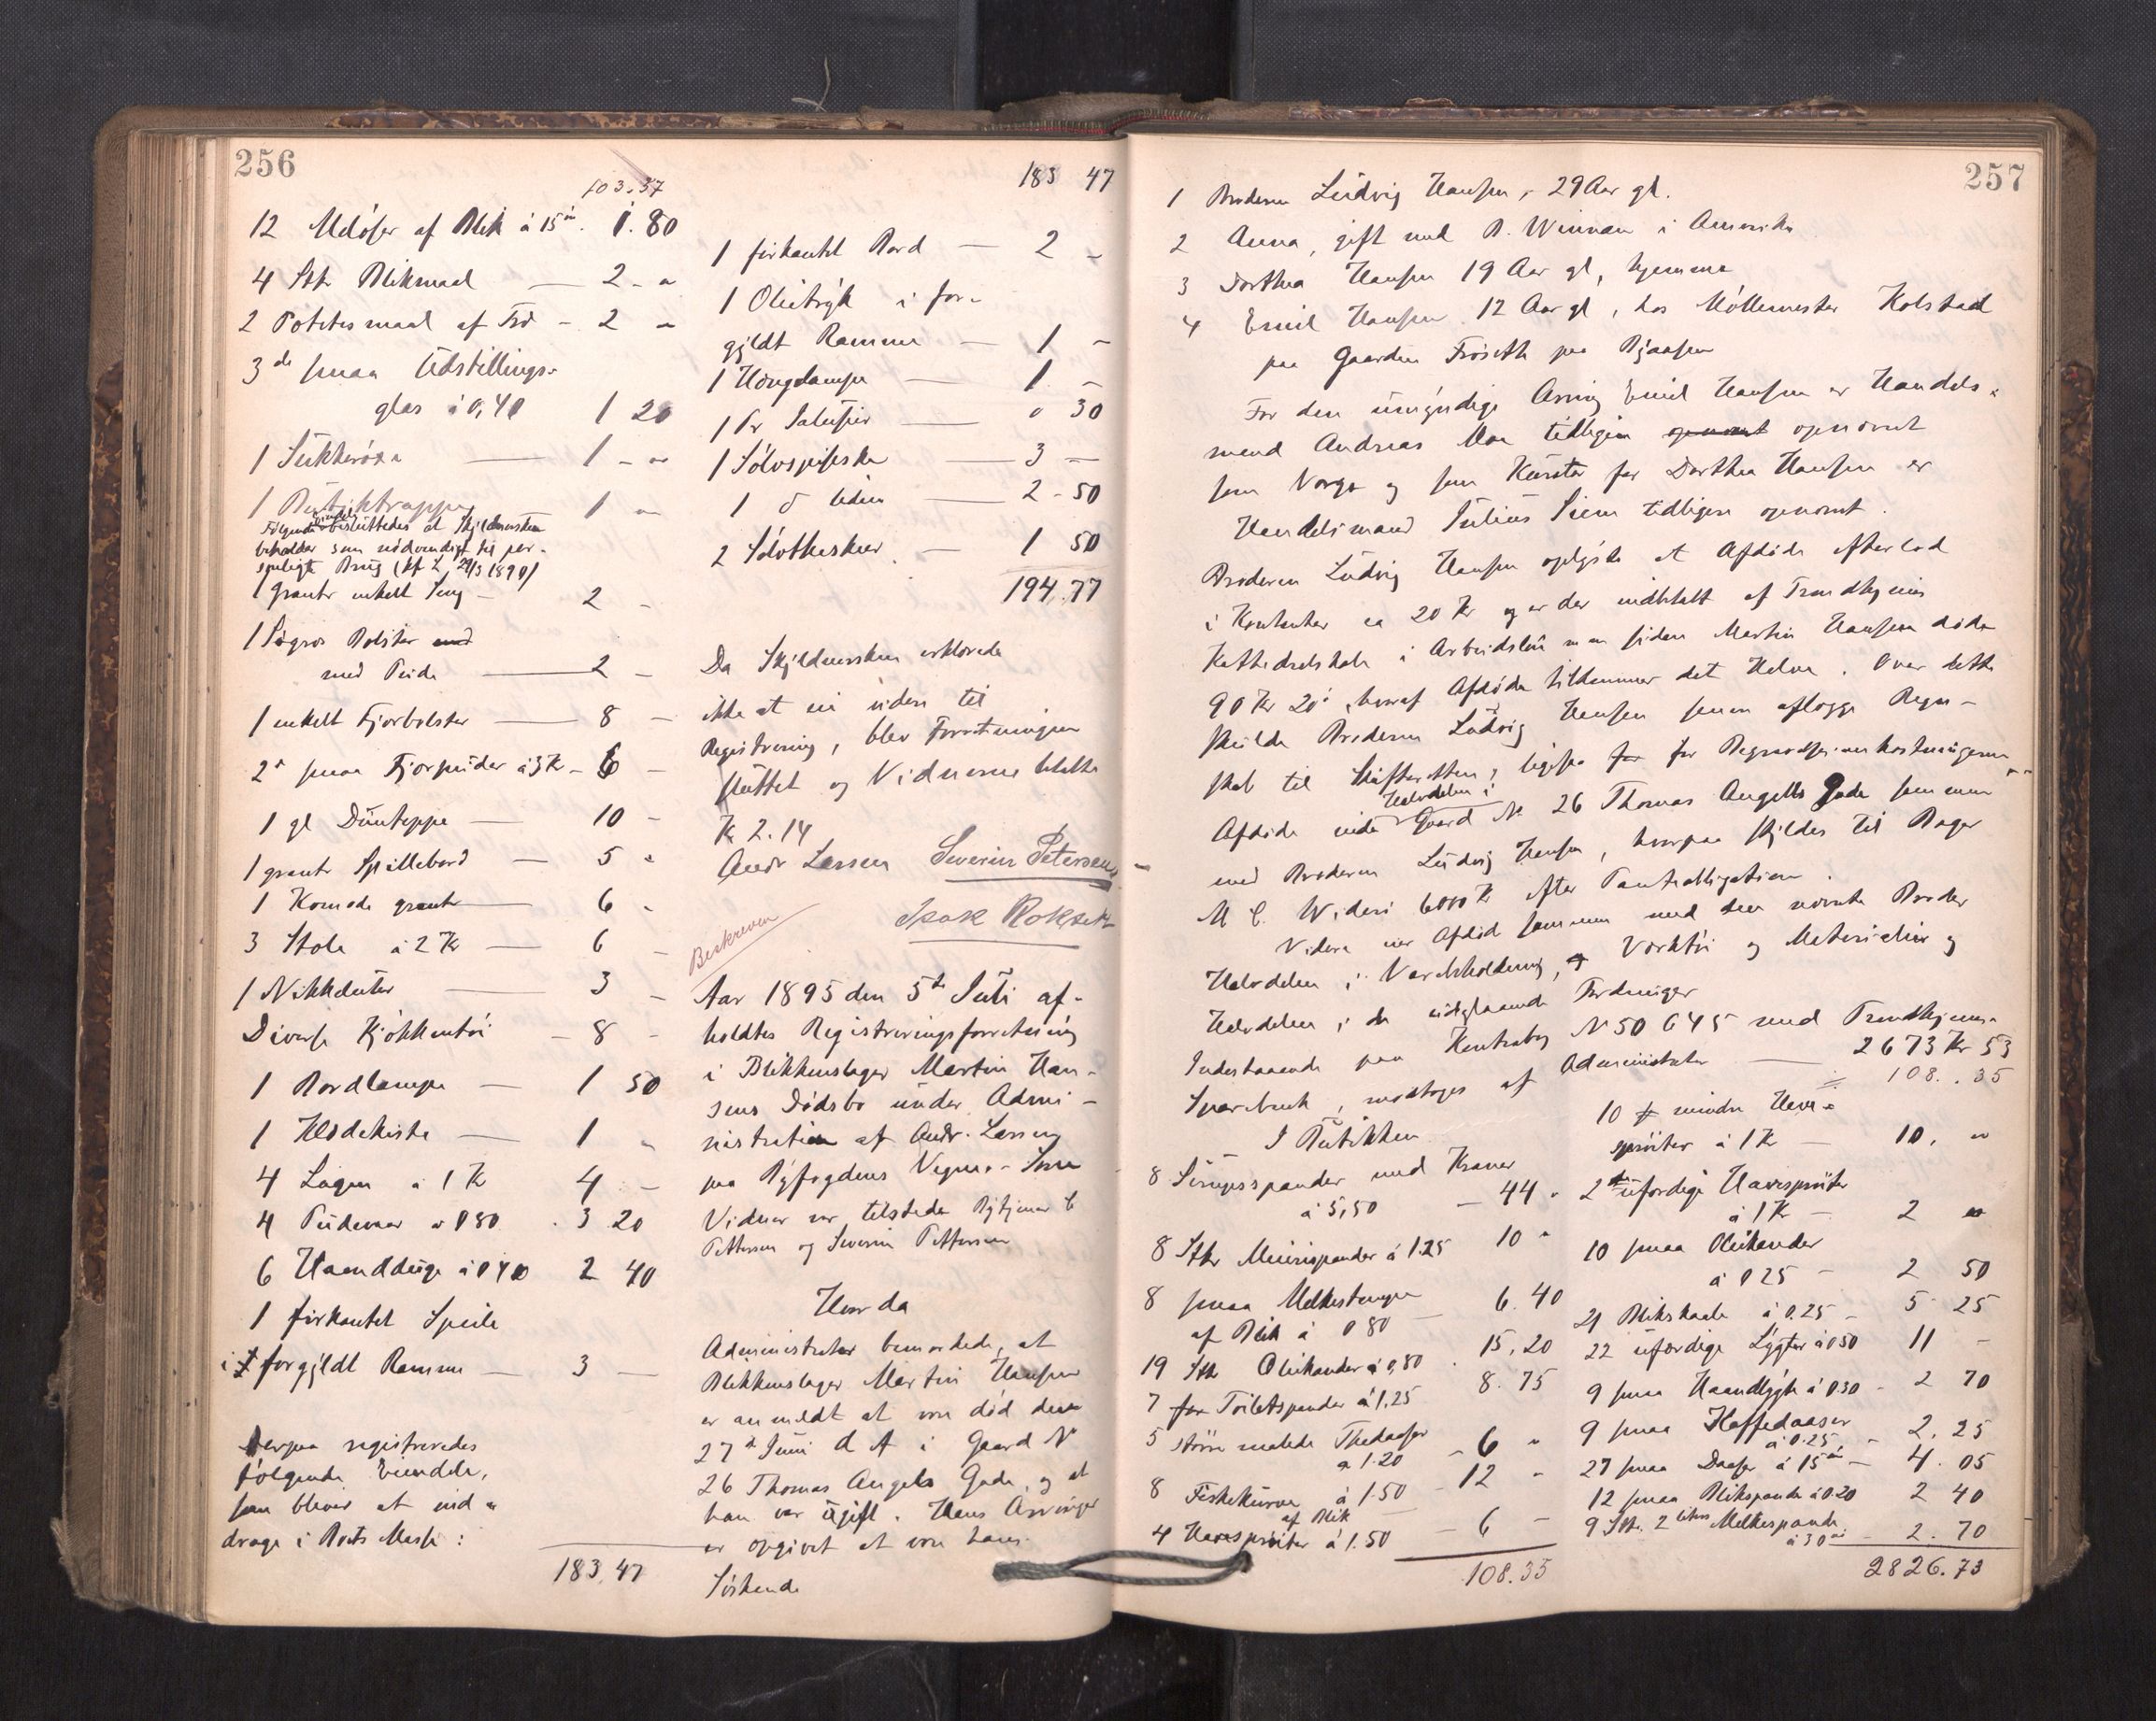 256
103.37
12 Meløser af Blik á 15 ør. 1.80
4 Stk Blikmaal — 2 - "
2 Potetesmaal af Træ - 2 "
3 de smaa Udstillings-
glas á 0,40 1 20
1 — 1 - "
1 Butiktrappe 1 "
Følgende besluttedes at Skyldnersken
beholder som nødvendigt til per-
sonligt Brug (kf L 29/3 1890)
1 grønt enkelt Seng — 2 -
1 Søgræs Bolster
med Pude — 2 -
1 enkelt Fjærbolster — 8 -
2 smaa Fjærpuder á 3 Kr - 6 -
1 gl Duntæppe — 10 -
1 grønt Spillebord — 5 "
1 Komode grønt — 6 -
3 Stole á 2 Kr — 6 -
1 — 3 -
Diverse Kjøkkentøi — 8 -
1 Bordlampe — 1 50
1 Klædekiste — 1 "
4 Lagen á 1 Kr 4 -
4 Pudevar á 0 80 . 3 20
6 Haandduge á 0 40 2 40
1 firkantet Speile
i forgyldt Ramme — 3 —
Derpaa registreredes
følgende Eiendele,
som bliver at ind-
drage i Boets Masse :
183.47
183 47
1 firkantet Bord — 2 -
1 Olietryk i for-
gyldt Ramme — 1 -
1 Hængelampe — 1 -
1 Pr Jalusier — 0 30
1 Sølvspiseske — 3 —
1 d liden — 2 - 50
2 Sølvtheskeer — 1 50
194.77
Da Skyldnersken erklærede
ikke at eie videre til
Registrering, blev Forretningen
sluttet og Vidnerne betalte
Kr 2.14
Andr Larssen Severin Petersen
Isak Rokseth
Beskreven
Aar 1895 den 5te Juli af-
holdtes Registreringsforretning
i Blikkenslager Martin Han-
sens Dødsbo under Admi-
nistration af Andr. Larssen
paa Byfogdens Vegne. - Som
Vidner var tilstede Bytjener C
Pettersen og Severin Pettersen
Hvorda
Administrator bemærkede, at
Blikkenslager Martin Hansen
er anmeldt at være død den
27de Juni d A i Gaard No
26 Thomas Angells Gade, og at
han var ugift. Hans Arvinger
er opgivet at være hans
Søskende
257
1 Broderen Ludvig Hansen, 29 Aar gl.
2 Anna, gift med B. Winnan i Amerika
3 Dorthea Hansen 19 Aar gl, hjemme
4 Emil Hansen 12 Aar gl, hos Møllemester Kolstad
paa Gaarden Frøseth paa Byaasen
For den umyndige Arving Emil Hansen er Handels-
mand Andreas Moe tidligere opnævnt
som Værge og som Kurator for Dorthea Hansen er
Handelsmand Julius Siem tidligere opnævnt.
Broderen Ludvig Hansen oplyste at Afdøde efterlod
i Kontanter ca 20 Kr og er der indbetalt af Trondhjems
Kathedralskole i Arbeidsløn siden Martin Hansen døde
90 Kr 20 ø, hvoraf Afdøde tilkommer det Halve. Over dette
skulde Broderen Ludvig Hansen senere aflægge Regn-
skab til Skifteretten, ligesaa for Begravelsesomkostningerne
Halvdelen i
Afdøde eiede Gaard No 26 Thomas Angells Gade sammen
med Broderen Ludvig Hansen, hvorpaa skyldes til Bager
M C. Widerø 6000 Kr efter Panteobligation.
Videre eier Afdød sammen med den nævnte Broder
Halvdelen i Varebeholdning, Værktøi og Materialier og
Halvdelen i de udestaaende Fordringer
Indestaaende paa Kontrabog No 50645 med Trondhjems
Sparebank, modtoges af Administrator — 2673 Kr 53
108..35
I Butikken
8 Sirupsspander med Kraner
á 5,50 — 44 "
8 Stk Meierispander á 1.25 10 "
8 smaa Melkestamper
af Blik á 0 80 — 6.40
19 Stk Oliekander á 0,80 . 15,20
7 Toiletspander á 1,25 8.75
5 større malede Thedaaser
á 1.20 - 6 "
8 Fiskekurve á 1.50 - 12 "
af Blik
4 Havesprøiter á 1.50 — 6 -
108.35
10 mindre Have-
sprøiter á 1 Kr — 10, "
2 ufærdige Havesprøiter
á 1 Kr — 2 "
10 smaa Oliekander
á 0 25 - 2 50
21 Blikskaale á 0.25 - 5 25
22 ufærdige Lygter á 0 50 11 -
9 smaa Haandlygte á 0.30 - 2 70
9 smaa Kaffedaaser
á 0.25 - 2.25
27 smaa Daaser á 15 ør — 4.05
12 smaa Blikspande á 0.20 2 40
9 Stk. 2 liters Melkespande
á 30 ør - 2.70
2826.73